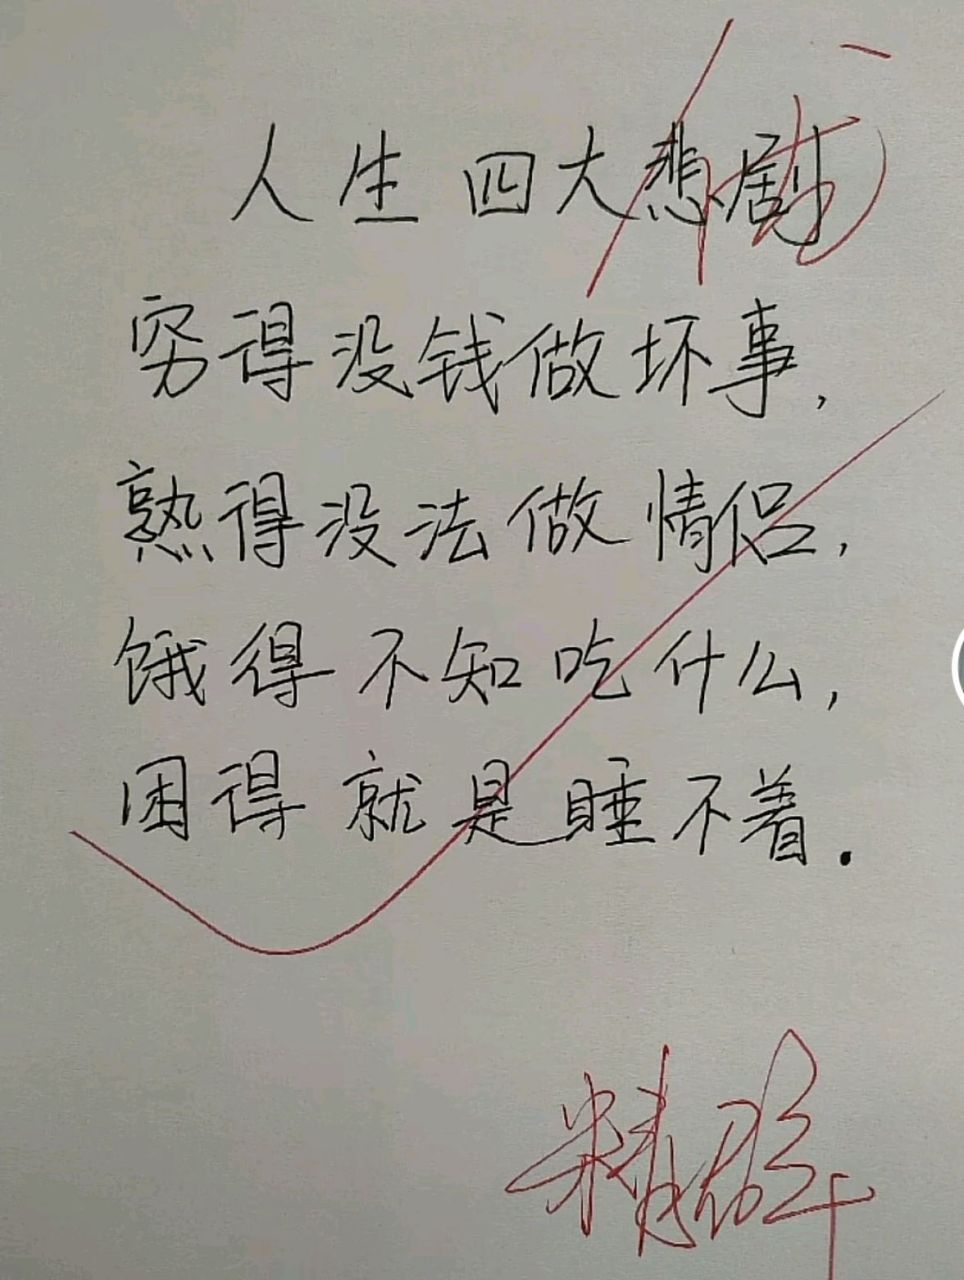 人生四大悲剧
穷得没钱做坏事,
熟得没法做情侣,
饿得不知吃什么,
困得就是睡不着.
精辟